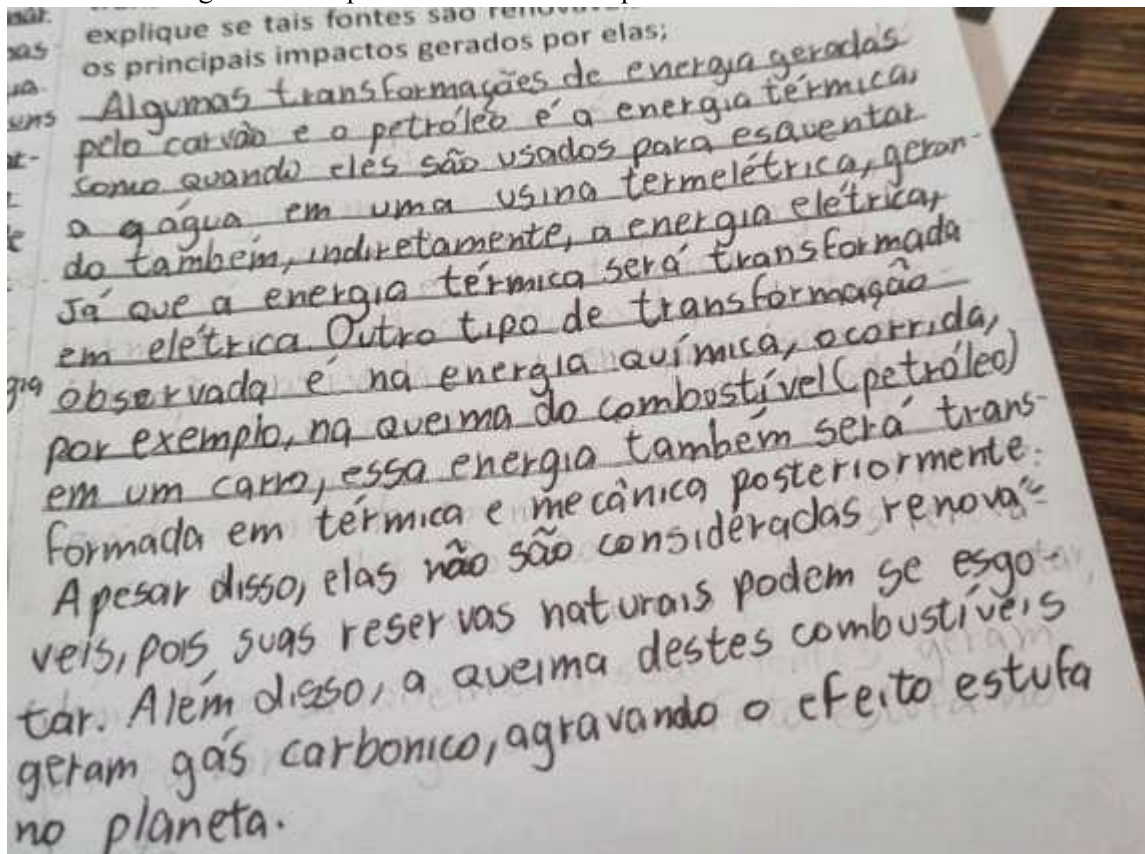 explique se tais fontes são
os principais impactos gerados por elas;
Algumas transformações de energia geradas
pelo carvão e o petróleo é a energia térmica,
como quando eles são usados para esquentar
a g água em uma usina termelétrica, geran-
do também, indiretamente, a energia elétrica,
Já que a energia térmica será transformada
em elétrica. Outro tipo de transformação
observada é na energia química, ocorrida,
por exemplo, na queima do combustível (petróleo)
em um carro, essa energia também será trans-
formada em térmica e mecânica posteriormente.
Apesar disso, elas não são consideradas renová-
veis, pois suas reservas naturais podem se esgo-
tar. Além disso, a queima destes combustíveis
geram gás carbonico, agravando o efeito estufa
no planeta.